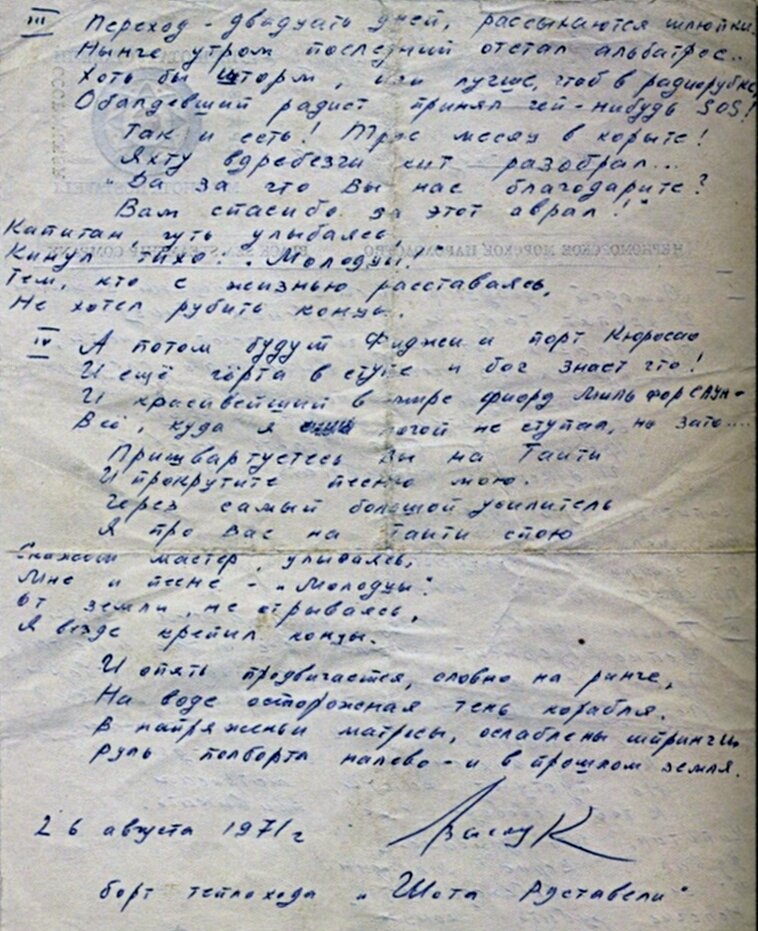 III Переход - двадцать дней, рассыхаются шлюпки.
Нынче утром последний отстал альбатрос..
Хоть бы шторм, или лучше, чтоб в радиорубке
Обалдевший радист принял чей-нибудь SOS!
Так и есть! Трое месяц в корыте!
Яхту вдребезги кит разобрал...
"Да за что Вы нас благодарите?
Вам спасибо за этот аврал!"
ЧЕРНОМОРСКОЕ МОРСКОЕ ПАРОХОДСТВО BLACK SEA STEAMSHIP COMPANY
Капитан, чуть улыбаясь,
Кинул тихо: "Молодцы!"
Тем, кто с жизнью расставаясь,
Не хотел рубить концы.
IV А потом будут Фиджи и порт Кюрасао
И ещё чёрта в ступе и бог знает что!
И красивейший в мире фиорд Мильфорсаун-
Всё, куда я ногой не ступал, но зато....
Пришвартуетесь вы на Таити
И прокрутите песню мою.
Через самый большой усилитель
Я про Вас на Таити спою
Скажет мастер, улыбаясь,
Мне и песне - "Молодцы".
От земли, не отрываясь,
Я везде крепил концы.
И опять продвигается, словно на ринге,
На воде осторожная тень корабля.
В напряженьи матросы, ослаблены шпринги
Руль полборта налево - и в прошлом земля.
26 августа 1971г
борт теплохода "Шота Руставели"